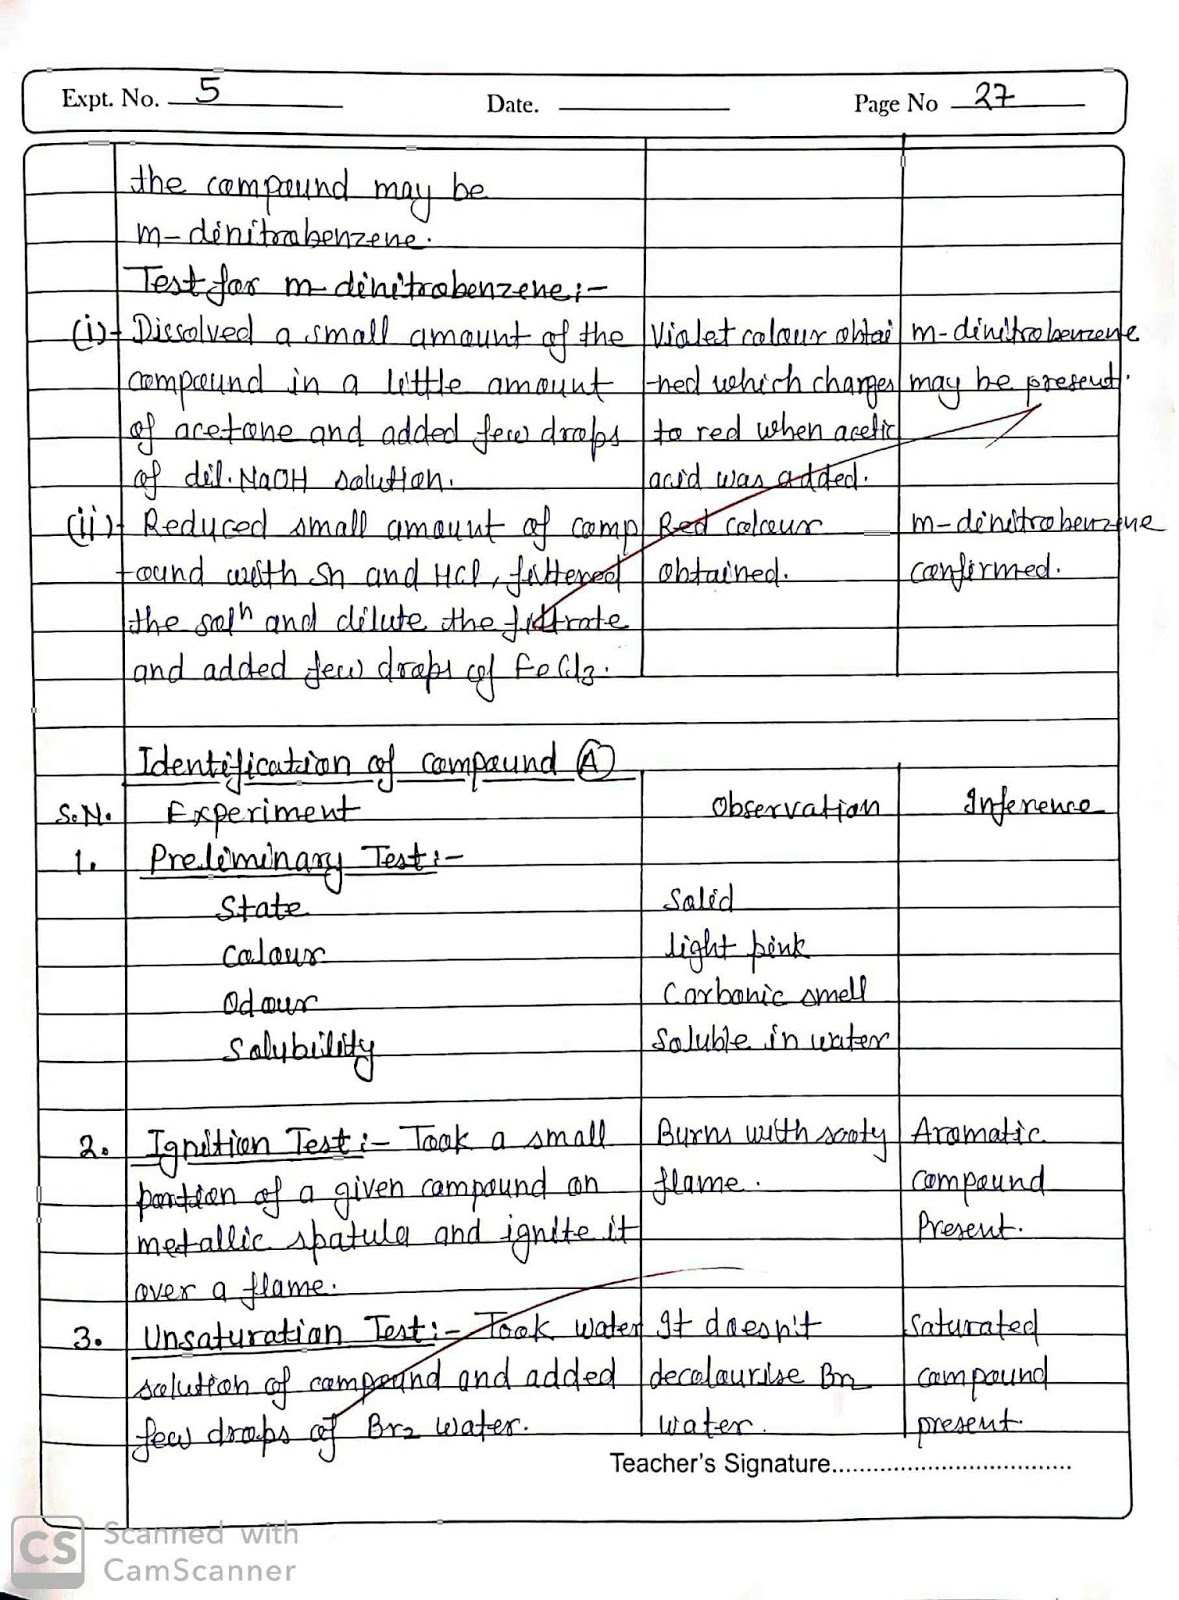 Expt. No. 5 Date. Page No 27
the compound may be
m-dinitrobenzene.
Test for m-dinitrobenzene:-
(i)- Dissolved a small amount of the Violet colour obtai m-dinitrobenzene
compound in a little amount -ned which changes may be present.
of acetone and added few drops to red when acetic
of dil. NaOH solution. acid was added.
(ii)- Reduced small amount of comp Red colour m-dinitrobenzene
-ound with Sn and HCl, filtered obtained. confirmed.
the solⁿ and dilute the filtrate
and added few drops of FeCl3.
Identification of compound (A)
S.N. Experiment Observation Inference
1. Preliminary Test:-
State Solid
Colour light pink
Odour Carbonic smell
Solubility Soluble in water
2. Ignition Test:- Took a small Burns with sooty Aromatic
portion of a given compound on flame. compound
metallic spatula and ignite it Present.
over a flame.
3. Unsaturation Test:- Took water It doesn't Saturated
solution of compound and added decolourise Br2 compound
few drops of Br2 water. water. present.
Teacher's Signature.................................
CS Scanned with
CamScanner